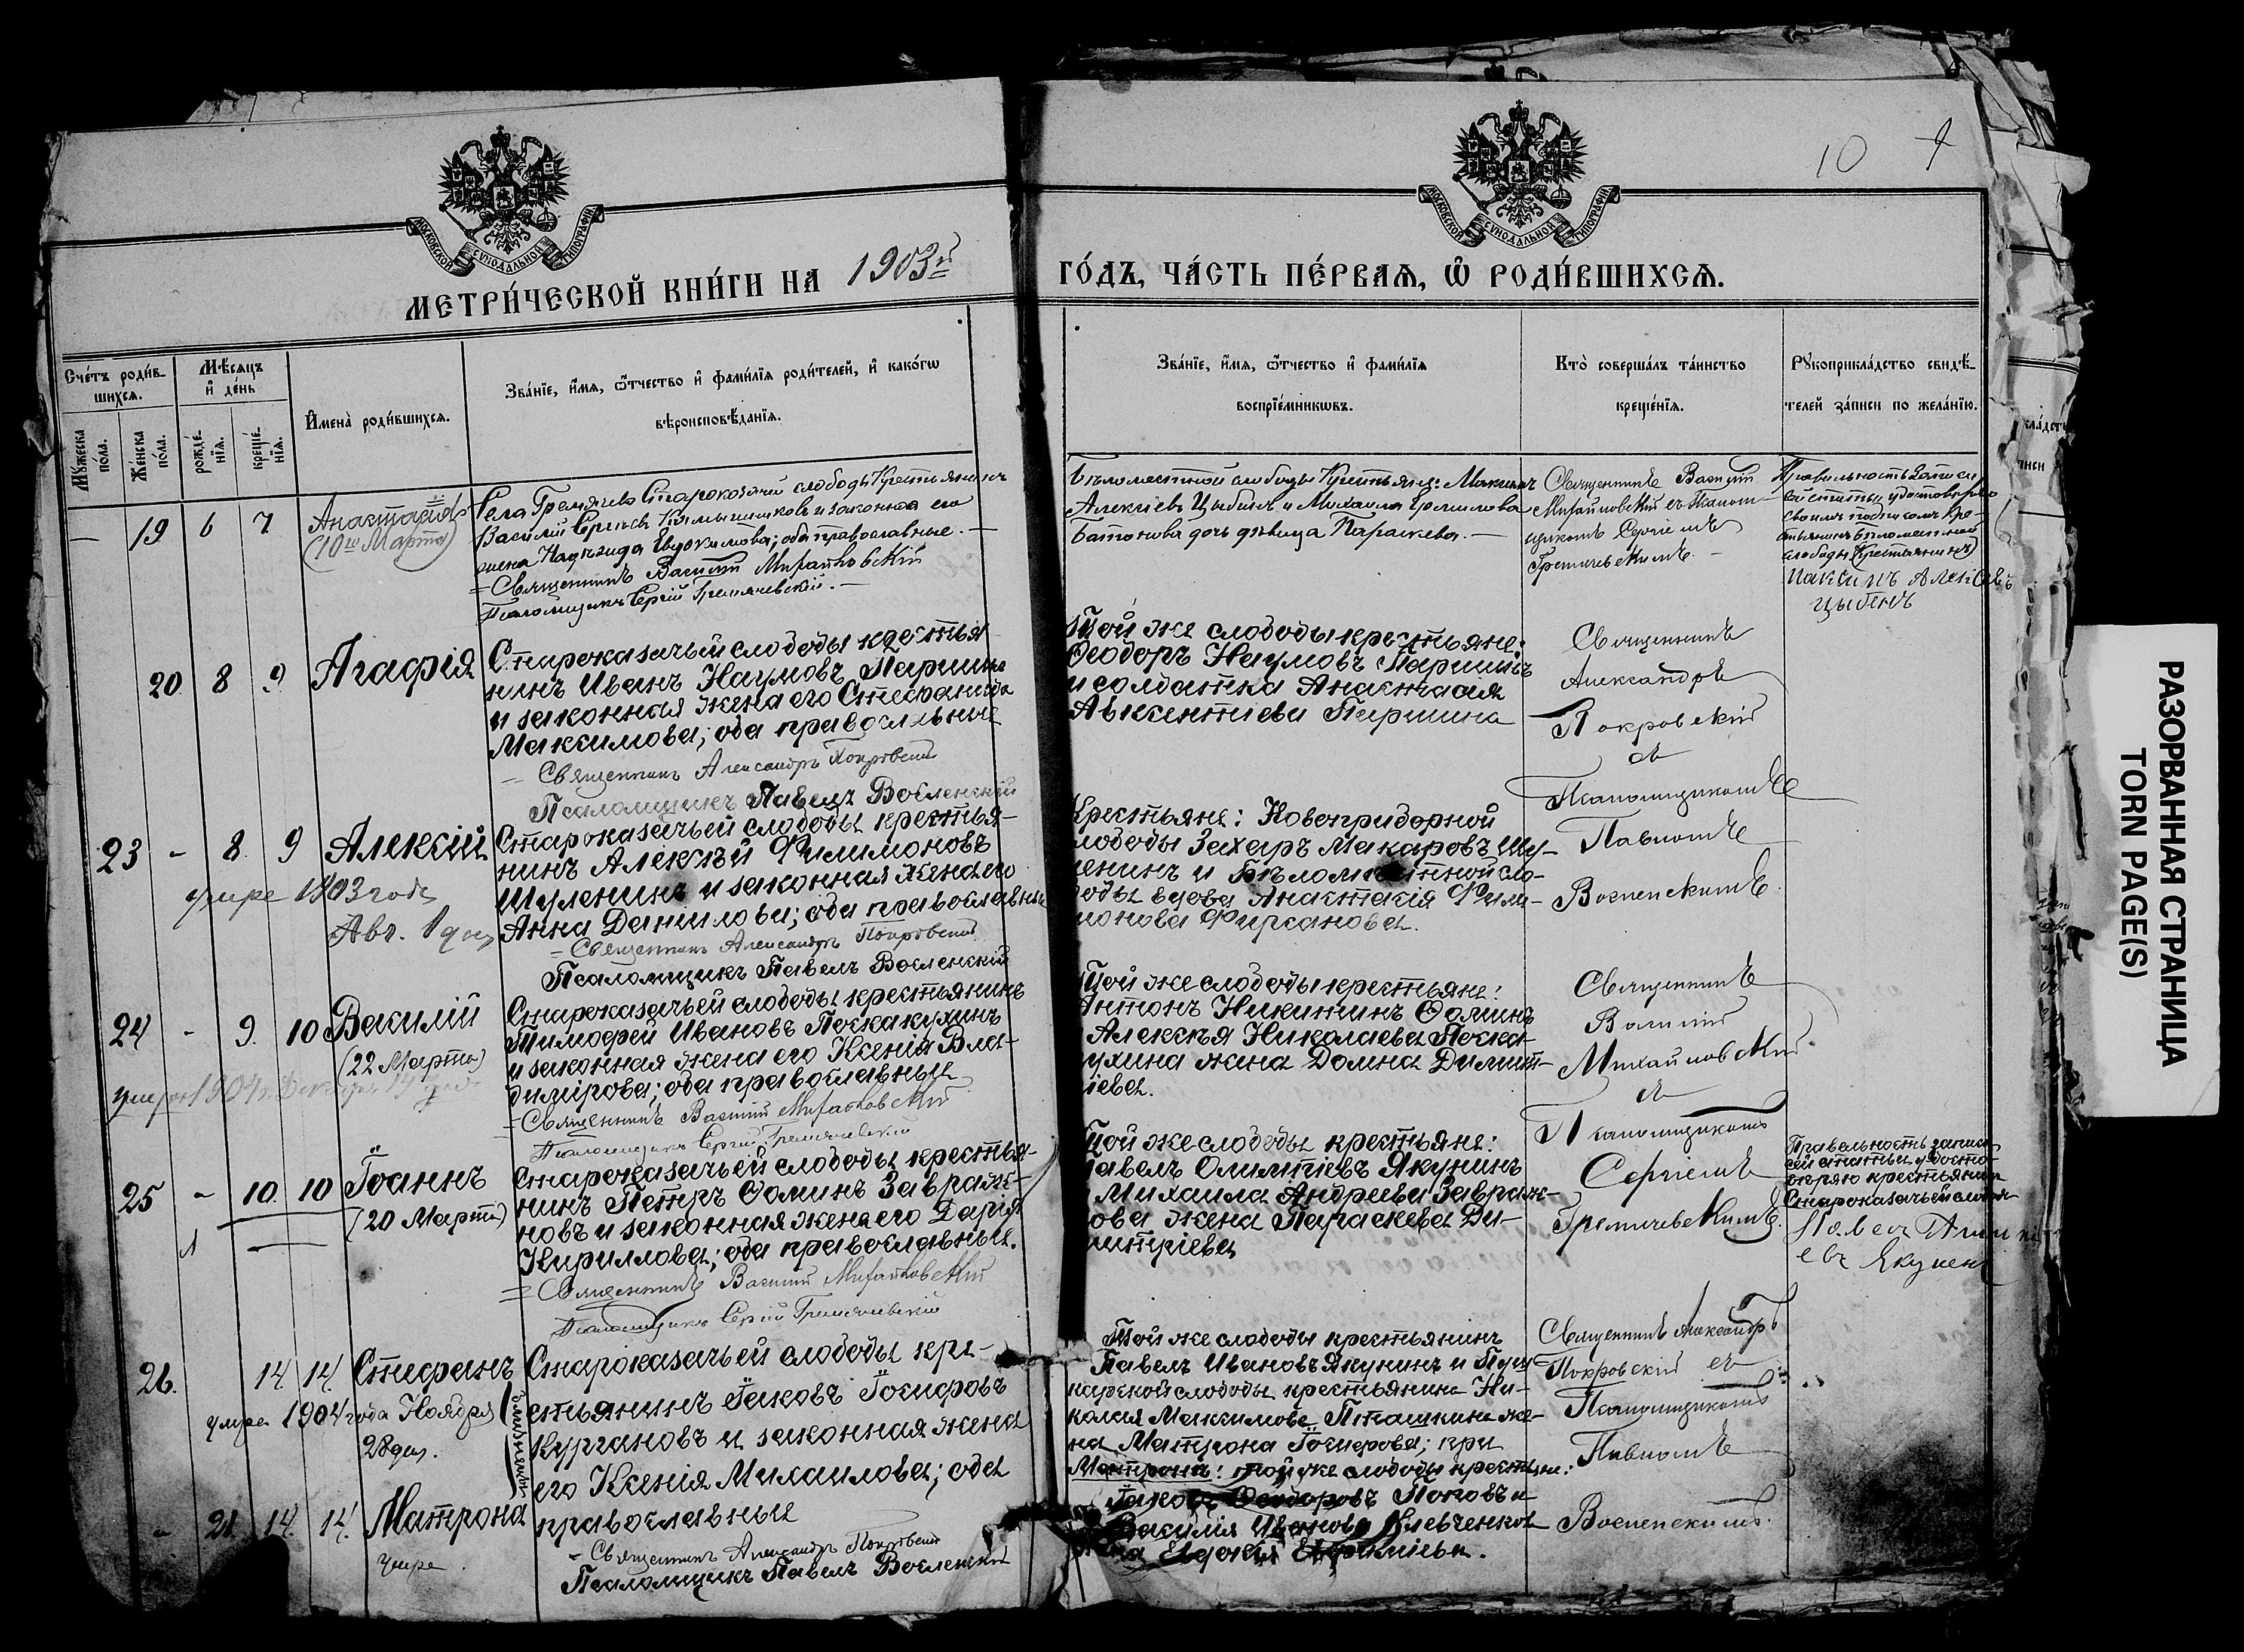 10
МОСКОВСКОЙ СУНОДАЛЬНОЙ ТИПОГРАФІИ
МОСКОВСКОЙ СУНОДАЛЬНОЙ ТИПОГРАФІИ
МЕТРИ́ЧЕСКОЙ КНИ́ГИ НА 1903й
ГО́ДЪ, ЧА́СТЬ ПЕ́РВАѦ, Ѡ҆ РОДИ́ВШИХСѦ.
Сче́тъ роди́в-
шихсѧ.
Мꙋжеска по́ла.
Же́нска по́ла.
Мѣ́сѧцъ и҆ де́нь
рожде́-
нїѧ.
креще́-
нїѧ.
И҆мена̀ роди́вшихсѧ.
Зва́нїе, и҆́мѧ, ѻ҆́тчество и҆ фами́лїѧ роди́телей, и҆ како́гѡ
вѣроисповѣ́данїѧ.
Зва́нїе, и҆́мѧ, ѻ҆́тчество и҆ фами́лїѧ
воспрїе́мникѡвъ.
Кто̀ соверша́лъ та́инство
креще́нїѧ.
Рꙋкоприкла́дство свидѣ́-
телей за́писи по жела́нїю.
– 19 6 7
Анастасія
(10го Марта)
Села Гремячева Староказачей слободы Крестьянинъ
Василій Сергѣевъ Камышниковъ и законная его
жена Надежда Евдокимова; оба православные. –
= Священникъ Василій Михайловскій
Псаломщикъ Сергій Гремячевскій. –
Бѣломѣстной слободы Крестьяне: Максимъ
Алексіевъ Цыбинъ и Михаила
дочь дѣвица Параскева. –
Священникъ Василій
Михайловскій съ Псалом-
щикомъ Сергіемъ
Гремячевскимъ. –
Правильность записи
сей статьи удостовѣряю
своимъ подписомъ Кре-
стьянинъ Бѣломѣстной
слободы (Крестьянинъ)
Максимъ Алексѣевъ
Цыбинъ
20 8 9 Агафія
Староказачьей слободы крестья
нинъ Иванъ Наумовъ Паршинъ
и законная жена его Стефанида
Максимова; оба православные
– Священникъ Александръ Покровскій
Псаломщикъ Павелъ Воскенскій
Той же слободы крестьяне:
Ѳеодоръ Наумовъ Паршинъ
и солдатка Анастасія
Авксентіева Паршина
Священникъ
Александръ
Покровскій
съ
Псаломщикомъ
Павломъ
23 – 8 9 Алексій
умре 1903 года
Авг. 1 дня
Староказачьей слободы крестья-
нинъ Алексѣй Филимоновъ
Шуленинъ и законная жена его
Анна Данилова; оба православные
– Священникъ Александръ Покровскій
Псаломщикъ Павелъ
Крестьяне: Новопридорной
слободы Захаръ Макаровъ Шу-
ленинъ и Бѣломѣстной сло-
боды вдова Анастасія Фили-
монова Фирсанова.
24 – 9. 10 Василій
(22 Марта)
Староказачьей слободы крестьянинъ
Тимофей Ивановъ Поскакухинъ
и законная жена его Ксенія Вла-
димірова; оба православные
= Священникъ Василій Михайловскій
Псаломщикъ Сергій Гремячевскій
Той же слободы крестьяне:
Антонъ Никитинъ Ѳоминъ
Алексѣя Николаева Поска-
кухина жена Домна Димит-
ріева.
Священникъ
Василій
Михайловскій
съ
Псаломщикомъ
Сергіемъ
Гремячевскимъ.
25 – 10. 10 Іоаннъ
(20 Марта)
Староказачьей слободы крестья-
нинъ Петръ Ѳоминъ Завраж-
новъ и законная жена его Дарія
Кириллова; оба православные.
= Священникъ Василій Михайловскій
Псаломщикъ Сергій Гремячевскій
Той же слободы крестьяне:
Павелъ Олимпіевъ Якунинъ
Михаила Андреева Завраж-
нова жена Параскева Ди-
митріева
Правельность записи
сей статьи удосто-
вѣряю крестьянинъ
Староказачьей слобо-
Павел
евъ Якунен
26. 14. 14. Стефанъ
умре 1904 года Ноября
28 дня.
близнецы
Староказачьей слободы кре-
стьянинъ Іаковъ Іосифовъ
Кургановъ и законная жена
его Ксенія Михаилова; оба
православные
– Священникъ Александръ Покровскій
Псаломщикъ Павелъ
Той же слободы крестьянинъ
Павелъ Ивановъ Якунинъ и Пуш-
карской слободы крестьянина Ни-
колая Максимова Пташкина же-
на Матрона Іосифова; при
Матронѣ: той же слободы крестьяне:
Іаковъ Ѳеодоровъ Поповъ и
Василія Иванова Клевченкова
жена Евдокія
Священникъ Александръ
Покровскій съ
Псаломщикомъ
Павломъ
– 21. 14. 14. Матрона
умре
РАЗОРВАННАЯ СТРАНИЦА
TORN PAGE(S)